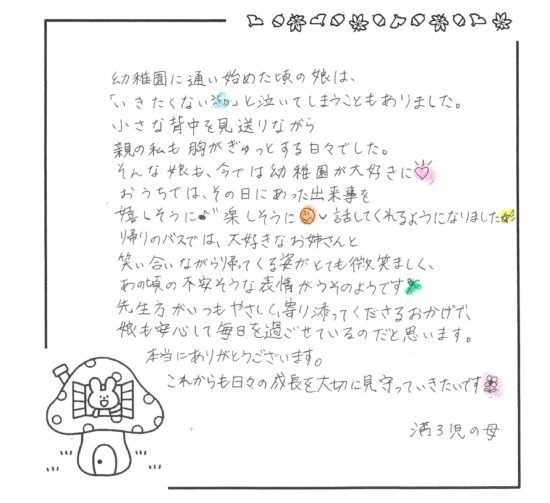 幼稚園に通い始めた頃の娘は、
「いきたくない」と泣いてしまうこともありました。
小さな背中を見送りながら
親の私も胸がぎゅっとする日々でした。
そんな娘も、今では幼稚園が大好きに♡
おうちでは、その日にあった出来事を
嬉しそうに♪楽しそうに話してくれるようになりました
帰りのバスでは、大好きなお姉さんと
笑い合いながら帰ってくる姿がとても微笑ましく、
あの頃の不安そうな表情がうそのようです
先生方がいつもやさしく、寄り添ってくださるおかげで、
娘も安心して毎日を過ごせているのだと思います。
本当にありがとうございます。
これからも日々の成長を大切に見守っていきたいです
満3児の母